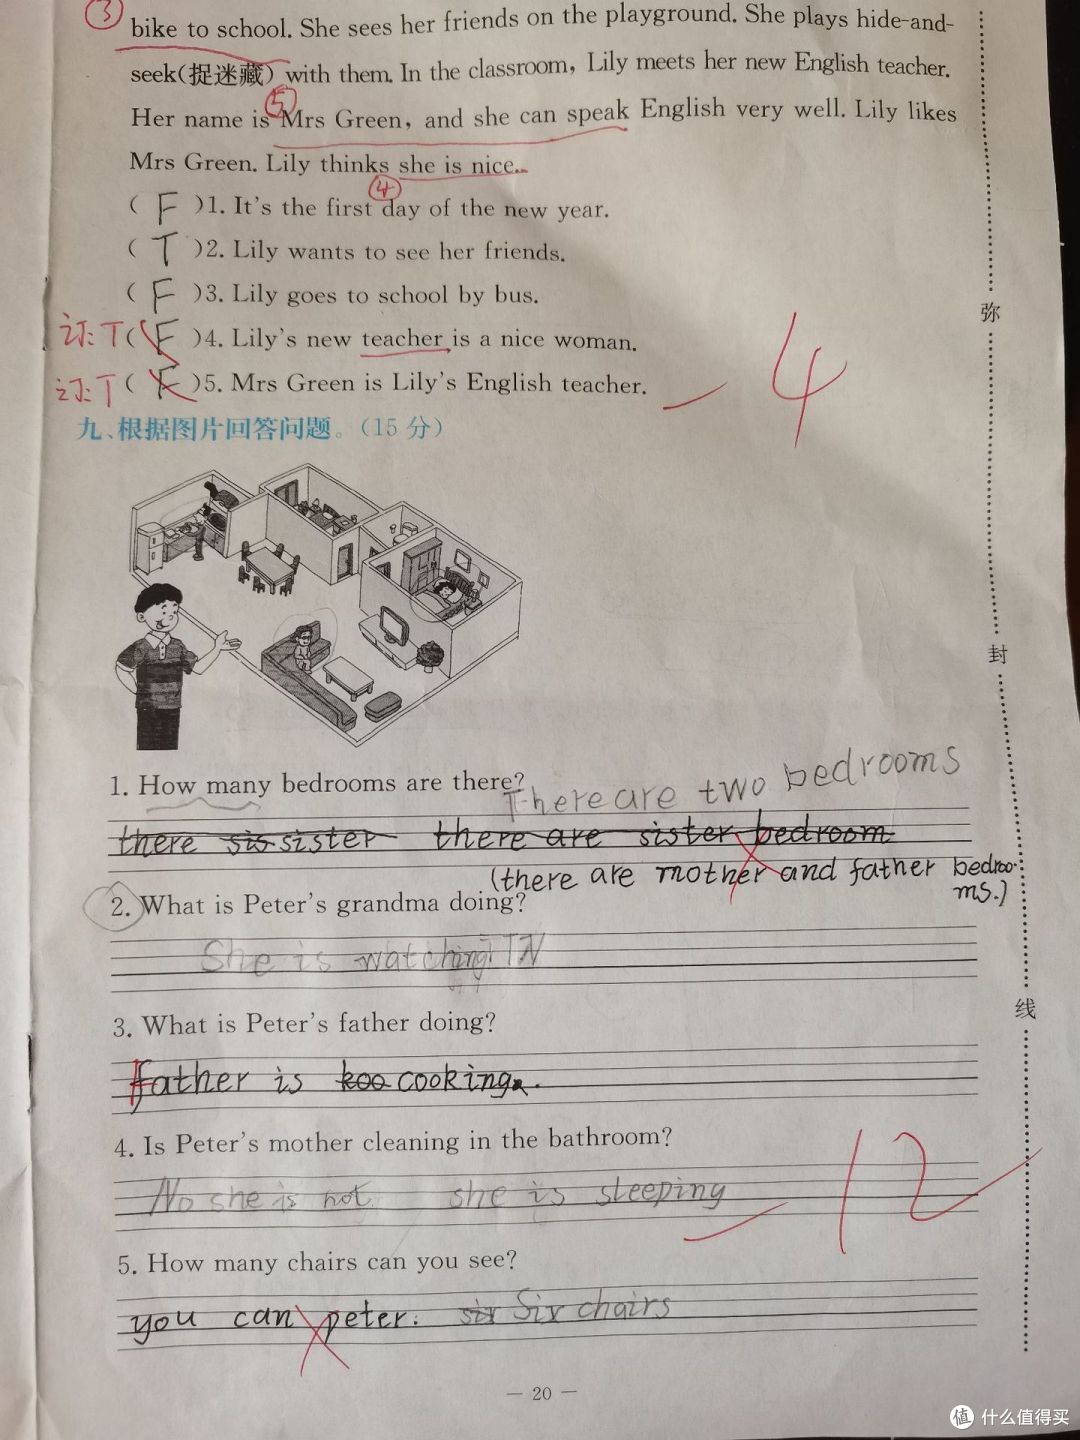 ③ bike to school. She sees her friends on the playground. She plays hide-and-
seek(捉迷藏) with them. In the classroom, Lily meets her new English teacher.
⑤
Her name is Mrs Green, and she can speak English very well. Lily likes
Mrs Green. Lily thinks she is nice.
④
( F )1. It's the first day of the new year.
( T )2. Lily wants to see her friends.
( F )3. Lily goes to school by bus.
T ( F )4. Lily's new teacher is a nice woman.
T ( F )5. Mrs Green is Lily's English teacher.
4
九、根据图片回答问题。(15 分)
1. How many bedrooms are there?
There are two bedrooms
there sis sister there are sister bedroom
(there are mother and father bedrooms.)
2. What is Peter's grandma doing?
She is watching TV
3. What is Peter's father doing?
father is koo cooking.
4. Is Peter's mother cleaning in the bathroom?
No she is not she is sleeping
12
5. How many chairs can you see?
you can peter. six Six chairs
— 20 —
弥
封
线
值 什么值得买